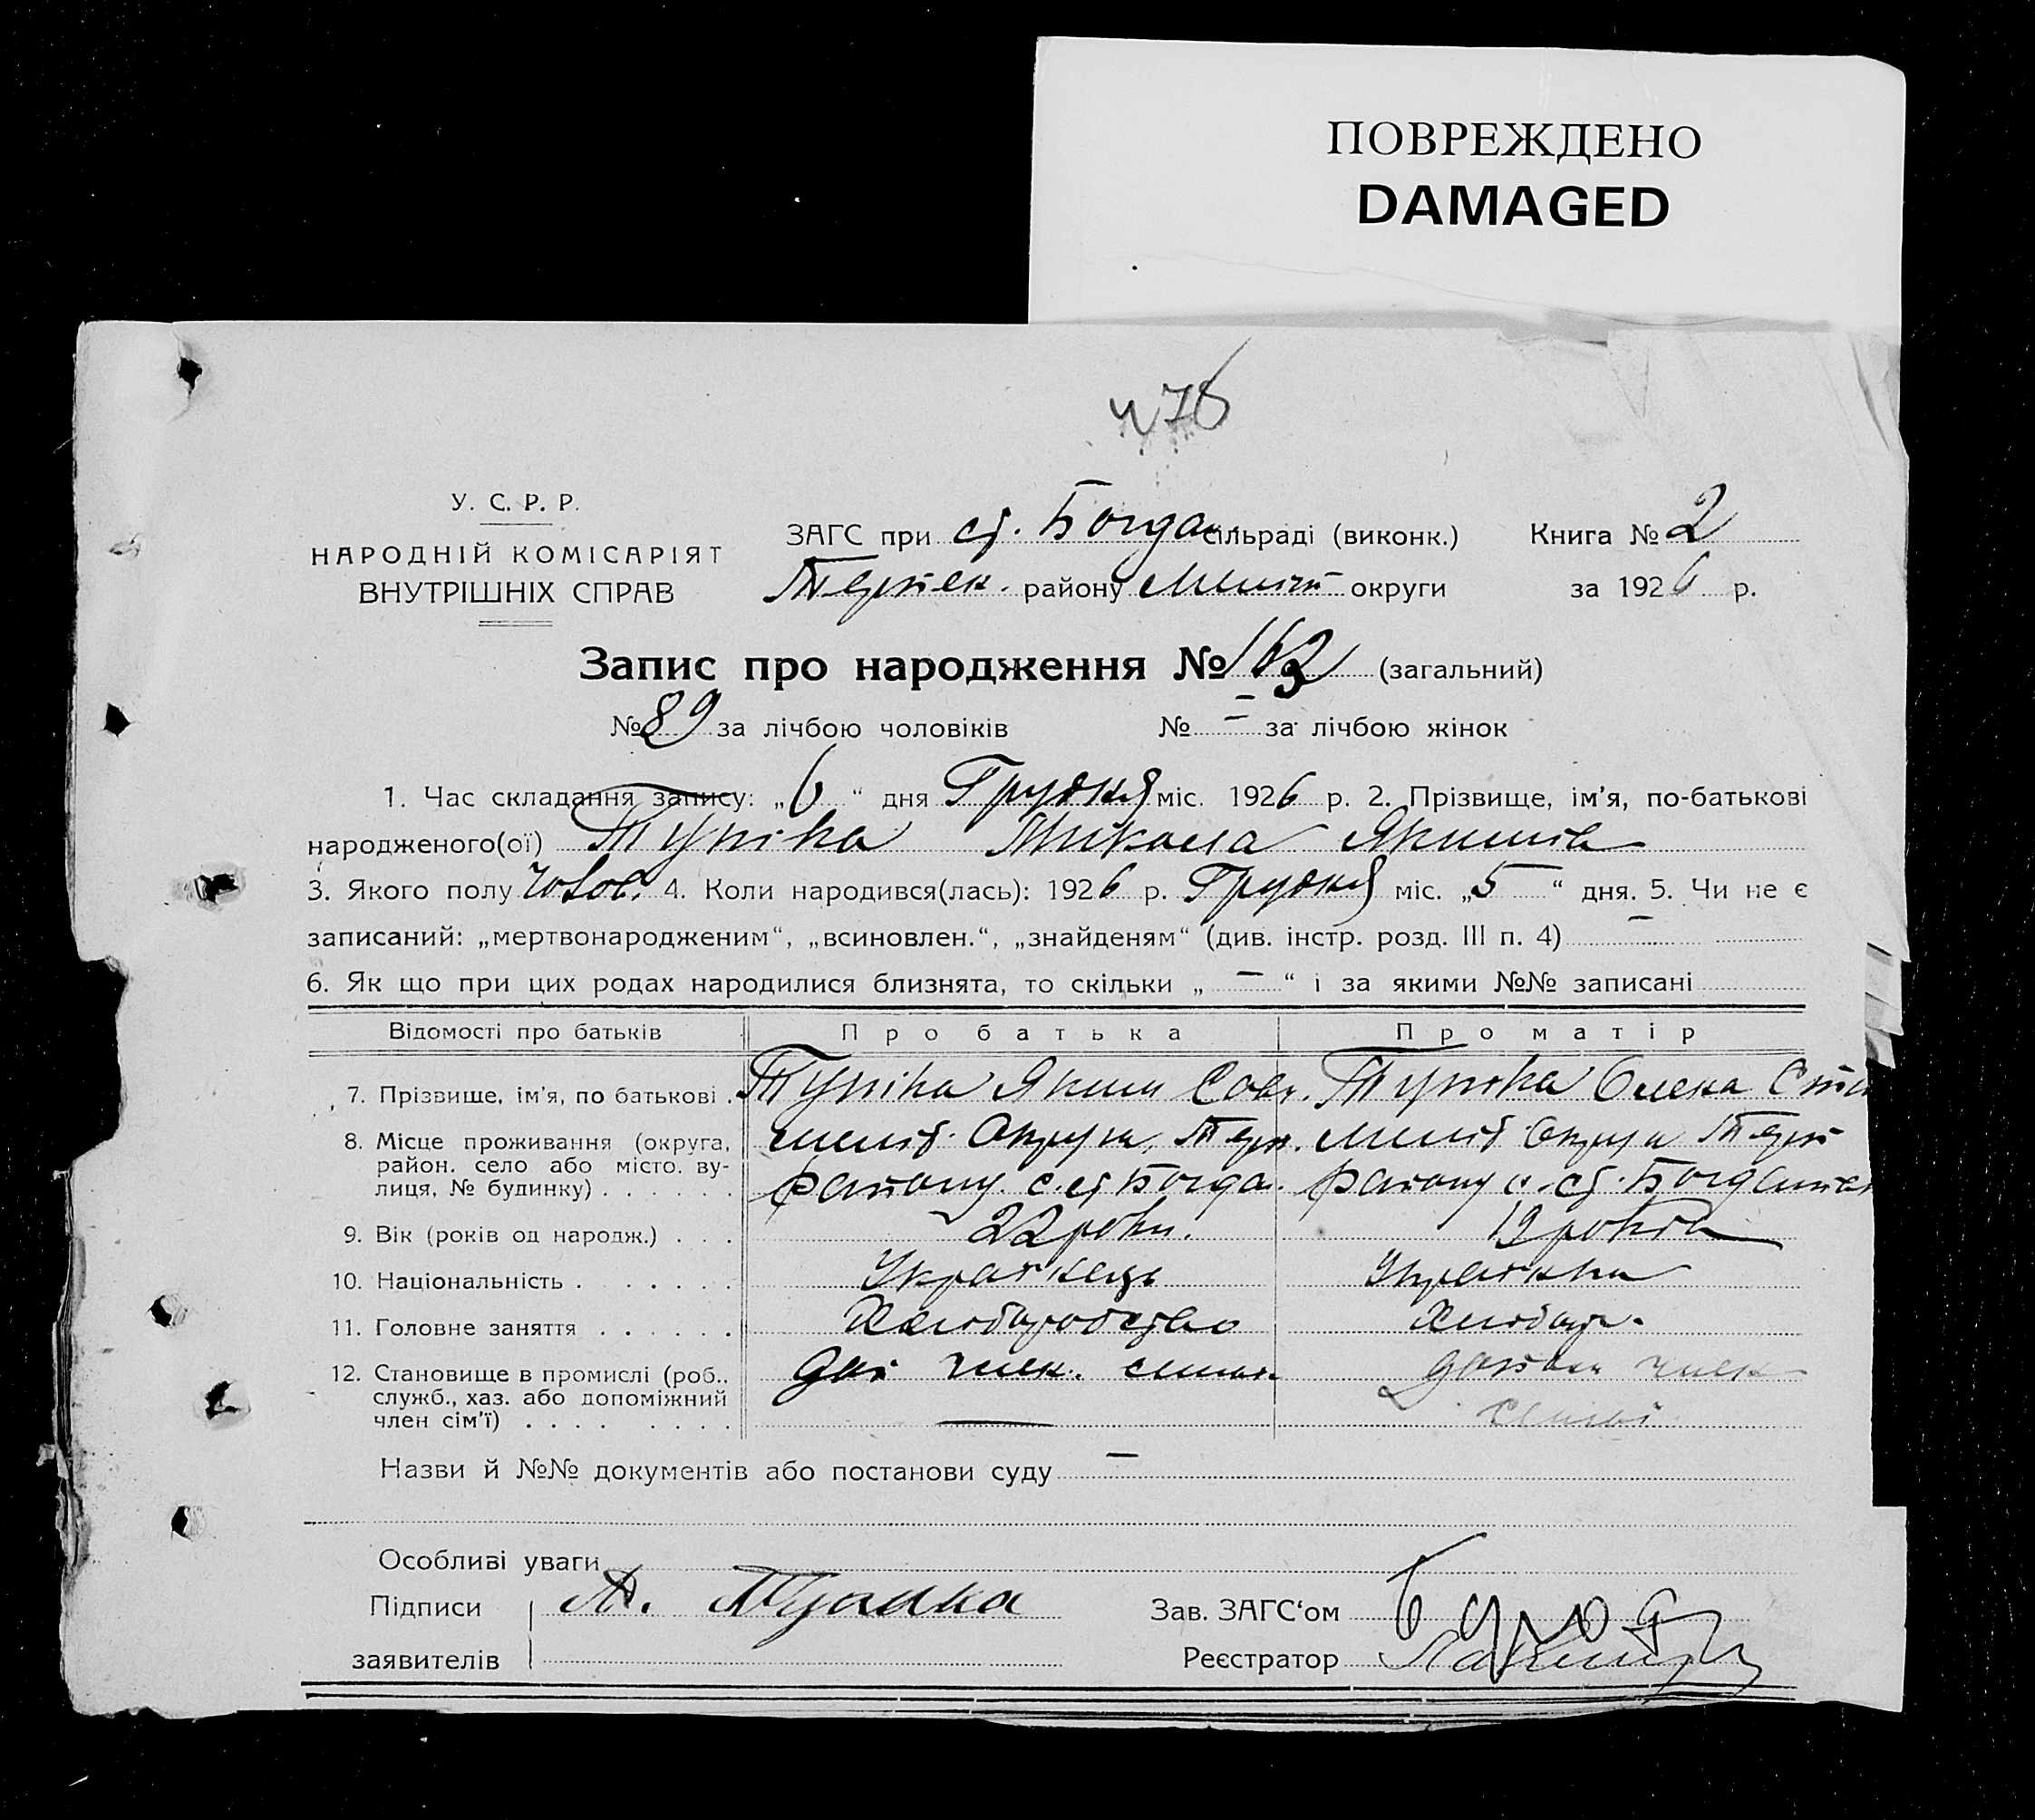 ПОВРЕЖДЕНО
DAMAGED
ч78
У. С. Р. Р.
НАРОДНІЙ КОМІСАРІЯТ
ВНУТРІШНІХ СПРАВ
ЗАГС при ст. Богда сільраді (виконк.) Книга № 2
Терпен. району Меліт округи за 1926 р.
Запис про народження № 163 (загальний)
№ 89 за лічбою чоловіків № – за лічбою жінок
1. Час складання запису: „6“ дня Грудня міс. 1926 р. 2. Прізвище, ім'я, по-батькові
народженого(ої) Тупіка Микола Якимів
3. Якого полу чолов. 4. Коли народився(лась): 1926 р. Грудня міс. „5“ дня. 5. Чи не є
записаний: „мертвонародженим“, „всиновлен.“, „знайденям“ (див. інстр. розд. III п. 4) –
6. Як що при цих родах народилися близнята, то скільки „ – “ і за якими №№ записані
Відомості про батьків Про батька Про матір
7. Прізвище, ім'я, по батькові . Тупіка Яким Сав. Тупіка Олена
8. Місце проживання (округа, Меліт. Округи, Терп. Меліт Округи Терп
район. село або місто. ву- району. с. ст Богда. району с. ст. Богданівк
лиця, № будинку) . . . . . .
9. Вік (років од народж.) . . . 22 роки. 19 років
10. Національність . . . . . . . Українець Українка
11. Головне заняття . . . . . . Хліборобство Хлібор.
12. Становище в промислі (роб., доп член. сімьи допом член
служб., хаз. або допоміжний сімьї
член сім'ї) . . . . . . . . —
Назви й №№ документів або постанови суду –
Особливі уваги
Підписи
Зав. ЗАГС'ом
заявителів
Реєстратор